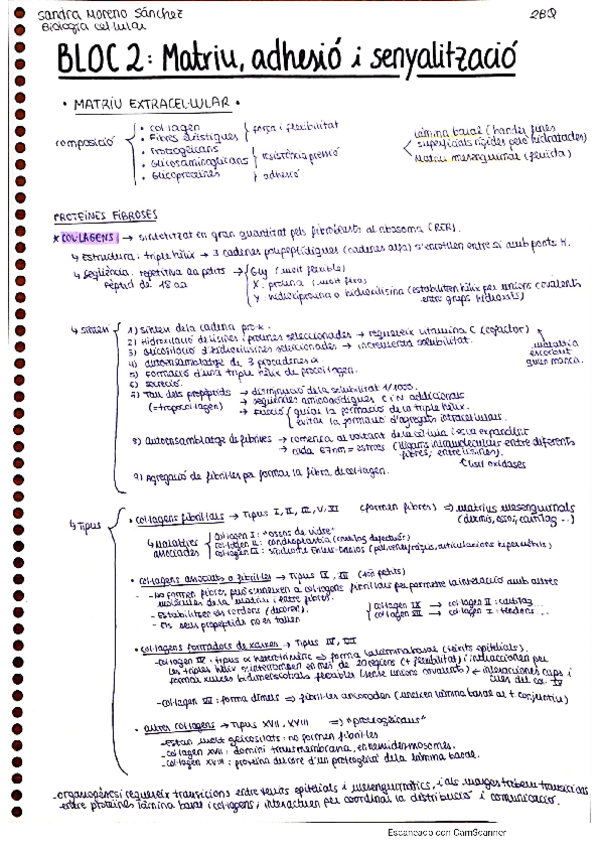 Sandra Moreno Sánchez
Biologia cel·lular
2BQ
BLOC 2: Matriu, adhesió i senyalització
• MATRIU EXTRACEL·LULAR •
composició
• col·lagen
• Fibres elàstiques
força i flexibilitat
• Proteoglicans
• Glicosaminoglicans
resistència pressió
• Glicoproteïnes
adhesió
làmina basal (bandes fines
superficials rígides però hidratades)
Matriu mesenquimal (fluida)
PROTEÏNES FIBROSES
* COL·LAGENS → sintetitzat en gran quantitat pels fibroblasts al ribosoma (RER).
↳ estructura: triple hèlix → 3 cadenes polipeptídiques (cadenes alfa) s'enrotllen entre si amb ponts H.
↳ seqüència: repetitiva en pèptids
→ Gly (molt flexible)
X: prolina (molt fixa)
Y: hidroxiprolina o hidroxilisina (estabilitzen hèlix per unions covalents
entre grups hidroxils)
↳ síntesi
1) síntesi de la cadena pro-α.
2) Hidroxilació de lisines i prolines seleccionades → requereix vitamina C (cofactor)
3) Glicosilació d'hidroxilisines seleccionades → incrementa solubilitat.
malaltia
escorbut
quan manca.
4) autoensamblatge de 3 procadenes α.
5) Formació d'una triple hèlix de procol·lagen.
6) secreció.
7) Tall dels propèptids
(= tropocol·lagen)
→ disminució de la solubilitat 1/1000.
→ seqüències aminoacídiques C i N addicionals
→ Funció
guiar la formació de la triple hèlix.
evitar la formació d'agregats intracel·lulars.
8) Autoensamblatge de fibril·les → comença al voltant de la cèl·lula i es va expandint
→ cada 67nm = estries (lligams intramoleculars entre diferents
fibres, entre lisines).
lisil oxidases
9) Agregació de fibril·les per formar la fibra de col·lagen.
↳ Tipus
• col·lagens fibril·lars → Tipus I, II, III, V, XI (formen fibres) ⇒ matrius mesenquimals
↳ Malalties
associades
col·lagen I: "ossos de vidre"
• col·lagens associats a fibril·les → Tipus IX, XII (+ petits)
- No formen fibres, però s'uneixen a col·lagens fibril·lars per permetre la interacció amb altres
molècules de la matriu i entre fibres.
- Estabilitzen els cordons
- Els seus propèptids no es tallen
col·lagen IX → col·lagen II: cartílag...
col·lagen XII → col·lagen I: tendons...
• col·lagens formadors de xarxes → Tipus IV, VII
- col·lagen VII: forma dímers ⇒ fibril·les ancorades (uneixen làmina basal al t. conjuntiu)
• altres col·lagens → Tipus XVII, XVIII ⇒ "proteoglicans"
- estan molt glicosilats: no formen fibril·les
- col·lagen XVII: domini transmembrana, en hemidesmosomes.
- col·lagen XVIII: proteïna del core d'un proteoglicà de la làmina basal.
- organogènesi requereix transicions entre teixits epitelials i mesenquimàtics, i als marges trobem transicions
entre proteïnes làmina basal i col·lagens, interactuen per coordinar la distribució i comunicació.
Escaneado con CamScanner